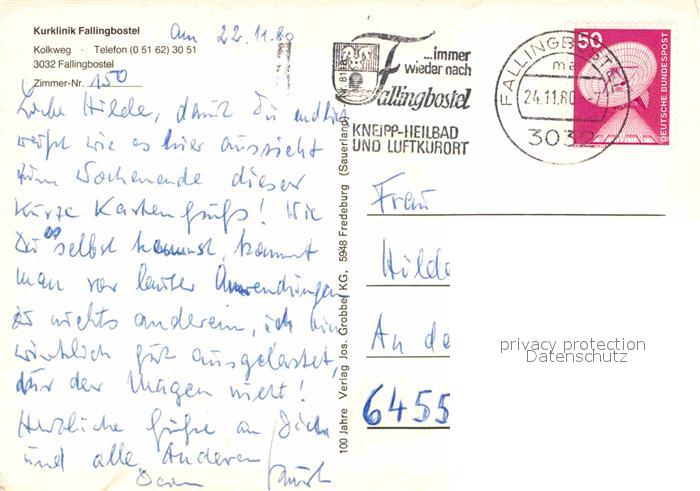 Kurklinik Fallingbostel
Kolkweg · Telefon (0 51 62) 30 51
3032 Fallingbostel
Zimmer-Nr. 150
am 22.11.80
Liebe Hilde, damit Du endlich
weißt wie es hier aussieht
zum Wochenende dieser
kurze Kartengruß! Wie
Du es selbst kennst, kommt
man vor lauter Anwendungen
zu nichts anderem, ich bin
wirklich gut ausgelastet,
nur der Magen nicht!
Herzliche Grüße an Dich
und alle Anderen
100 Jahre Verlag Jos. Grobbel KG, 5948 Fredeburg (Sauerland)
...immer
wieder nach
Fallingbostel
KNEIPP-HEILBAD
UND LUFTKURORT
FALLINGBOSTEL
ma
24.11.80
3032
50
DEUTSCHE BUNDESPOST
Frau
Hilde
An de
6455
privacy protection
Datenschutz